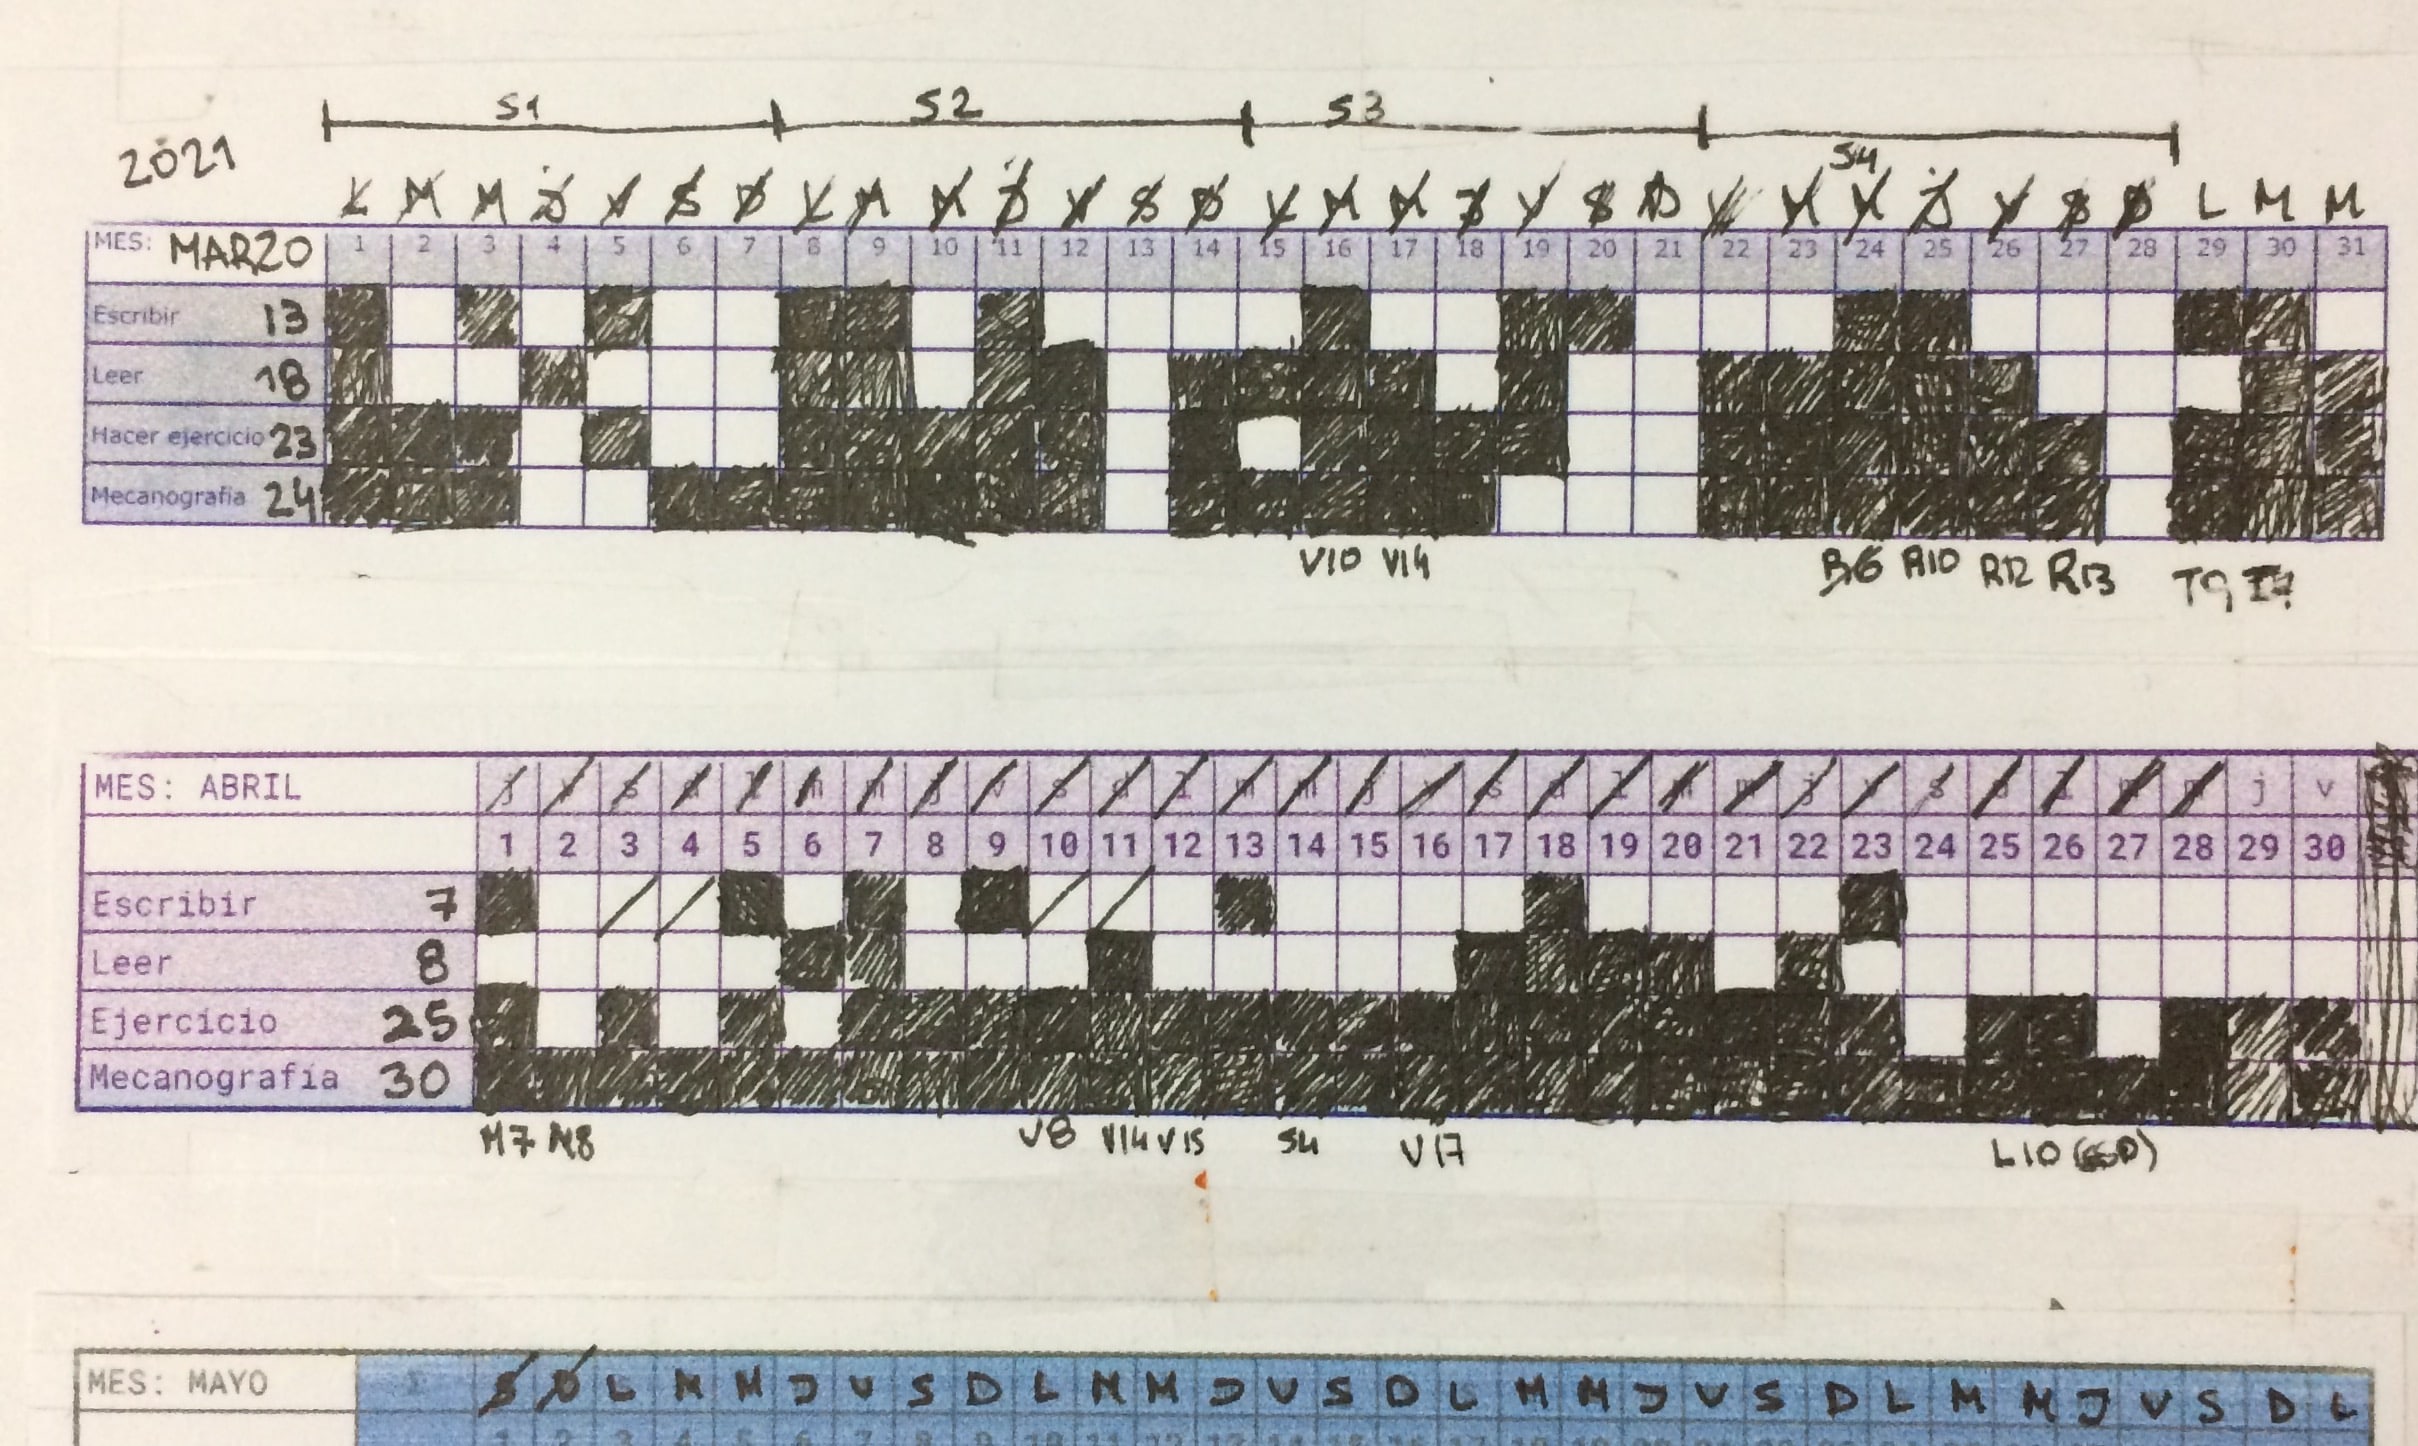 S1 S2 S3
2021 S4
L M M J V S D L M M J V S D L M M J V S D L M M J V S D L M M
MES: MARZO 1 2 3 4 5 6 7 8 9 10 11 12 13 14 15 16 17 18 19 20 21 22 23 24 25 26 27 28 29 30 31
Escribir 13
Leer 18
Hacer ejercicio 23
Mecanografía 24
V10 V14 R6 R10 R12 R13 T9
MES: ABRIL j v s d l m m j v s d l m m j v s d l m m j v s d l m m j v
1 2 3 4 5 6 7 8 9 10 11 12 13 14 15 16 17 18 19 20 21 22 23 24 25 26 27 28 29 30
Escribir 7
Leer 8
Ejercicio 25
Mecanografía 30
M7 M8 V8 V14 V15 S4 V17 L10
MES: MAYO S D L M M J V S D L M M J V S D L M M J V S D L M M J V S D L
1 2 3 4 5 6 7 8 9 10 11 12 13